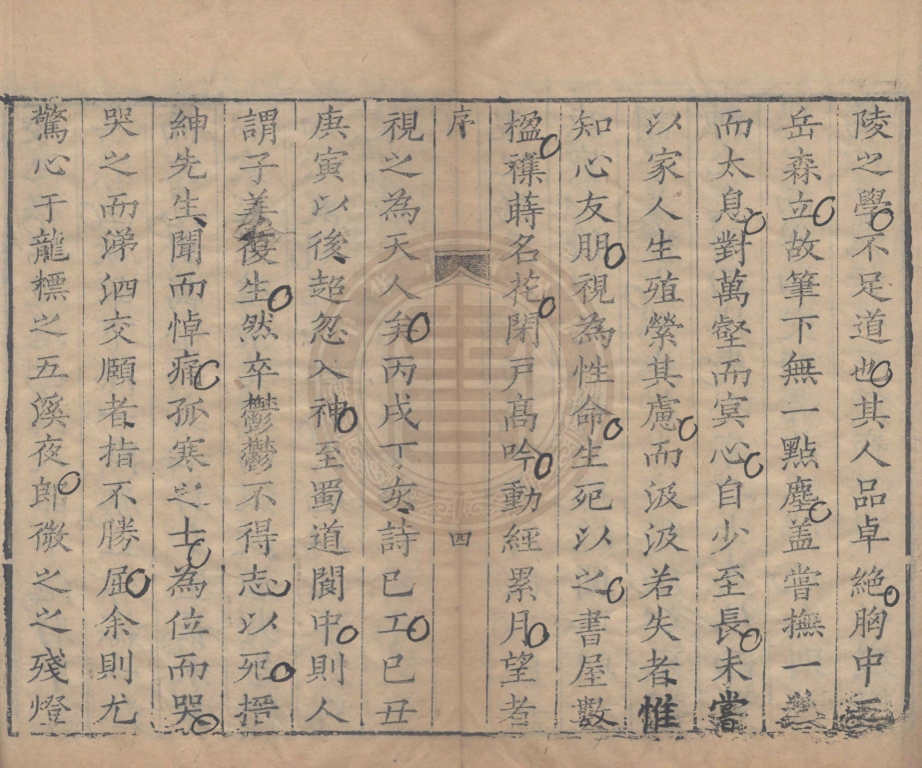 陵之學不足道也其人品卓絶胸中三
岳森立故筆下無一點塵盖嘗撫一
而太息對萬壑而㝠心自少至長未嘗
以家人生殖縈其慮而汲汲若失者惟
知心友朋視為性命生死以之書屋數
楹襍蒔名花閉戸髙吟動經累月望者
序
四
視之為天人矣丙戌丁亥詩已工己丑
庚寅以後超忽入神至蜀道閬中則人
謂子美復生然卒鬱鬱不得志以死搢
紳先生聞而悼痛孤寒之士為位而哭
哭之而涕泗交頤者指不勝屈余則尤
驚心于龍標之五溪夜郎微之之殘燈